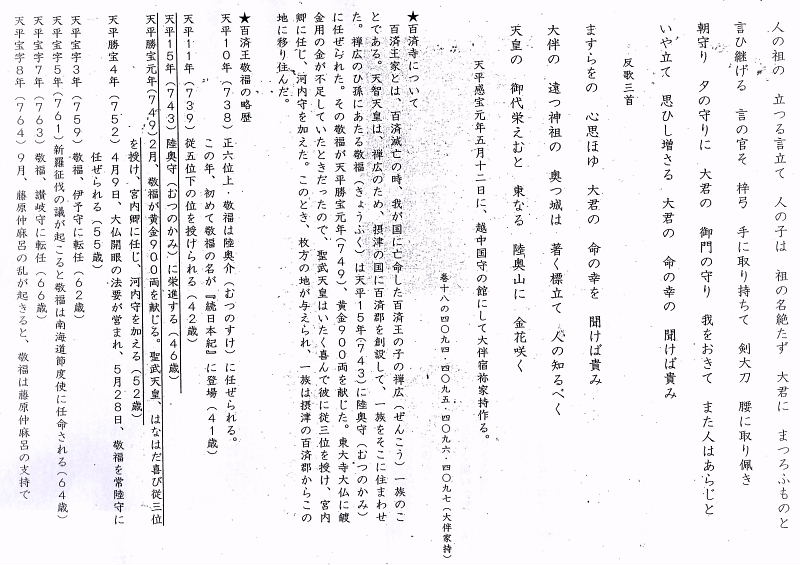 人の祖の 立つる言立て 人の子は 祖の名絶たず 大君に まつろふものと
言ひ継げる 言の官そ 梓弓 手に取り持ちて 剣大刀 腰に取り佩き
朝守り 夕の守りに 大君の 御門の守り 我をおきて また人はあらじと
いや立て 思ひし増さる 大君の 命の幸の 聞けば貴み
反歌三首
ますらをの 心思ほゆ 大君の 命の幸を 聞けば貴み
大伴の 遠つ神祖の 奥つ城は 著く標立て 人の知るべく
天皇の 御代栄えむと 東なる 陸奥山に 金花咲く
天平感宝元年五月十二日に、越中国守の館にして大伴宿祢家持作る。
巻十八の四〇九四・四〇九五・四〇九六・四〇九七(大伴家持)
★百済寺について
百済王家とは、百済滅亡の時、我が国に亡命した百済王の子の禅広(ぜんこう)一族のこ
とである。天智天皇は、禅広のため、摂津の国に百済郡を創設して、一族をそこに住まわせ
た。禅広のひ孫にあたる敬福(きょうふく)は天平15年(743)に陸奥守(むつのかみ)
に任ぜられた。その敬福が天平勝宝元年(749)、黄金900両を献じた。東大寺大仏に鍍
金用の金が不足していたときだったので、聖武天皇はいたく喜んで彼に従三位を授け、宮内
卿に任じ、河内守を加えた。このとき、枚方の地が与えられ、一族は摂津の百済郡からこの
地に移り住んだ。
★百済王敬福の略歴
天平10年(738)正六位上 敬福は陸奥介(むつのすけ)に任ぜられる。
この年、初めて敬福の名が『続日本紀』に登場(41歳)
天平11年(739)従五位下の位を授けられる(42歳)
天平15年(743)陸奥守(むつのかみ)に栄進する(46歳)
天平勝宝元年(749)2月、敬福が黄金900両を献じる。聖武天皇、はなはだ喜び従三位
を授け、宮内卿に任じ、河内守を加える(52歳)
天平勝宝4年(752)4月9日、大仏開眼の法要が営まれ、5月28日、敬福を常陸守に
任ぜられる(55歳)
天平宝字3年(759)敬福、伊予守に転任(62歳)
天平宝字5年(761)新羅征伐の議が起こると敬福は南海道節度使に任命される(64歳)
天平宝字7年(763)敬福、讃岐守に転任(66歳)
天平宝字8年(764)9月、藤原仲麻呂の乱が起きると、敬福は藤原仲麻呂の支持で